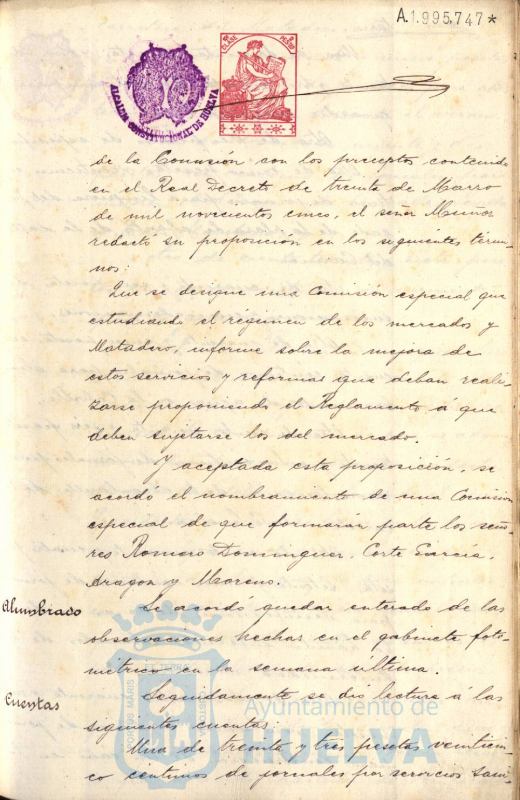 A.1.995.747*
CLASE PESO
ALCALDIA CONSTITUCIONAL DE HUELVA
de la Comisión con los preceptos contenido
en el Real Decreto de treinta de Marzo
de mil novecientos cinco, el señor Muñoz
redactó su proposición en los siguientes térmi-
nos:
Que se designe una Comisión especial que
estudiando el régimen de los mercados y
Matadero, informe sobre la mejora de
estos servicios y reformas que deban reali-
zarse proponiendo el Reglamento á que
deben sujetarse los del mercado.
Y aceptada esta proposición, se
acordó el nombramiento de una Comision
especial de que formarán parte los seño-
res Romero Dominguez, Corte Garcia,
Aragon y Moreno.
Alumbrado
Se acordó quedar enterado de las
observaciones hechas en el gabinete foto-
métrico en la semana ultima.
Cuentas
Seguidamente se dio lectura á las
siguientes cuentas:
Una de treinta y tres pesetas veinticin-
co centimos de jornales por servicios sani-
Ayuntamiento de
HUELVA
PORTUS MARIS